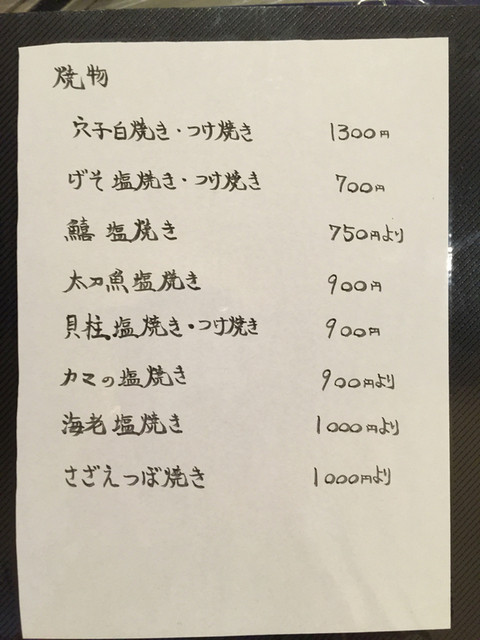 焼物
穴子白焼き・つけ焼き 1300円
げそ塩焼き・つけ焼き 700円
鱚 塩焼き 750円より
太刀魚塩焼き 900円
貝柱塩焼き・つけ焼き 900円
カマの塩焼き 900円より
海老塩焼き 1000円より
さざえつぼ焼き 1000円より